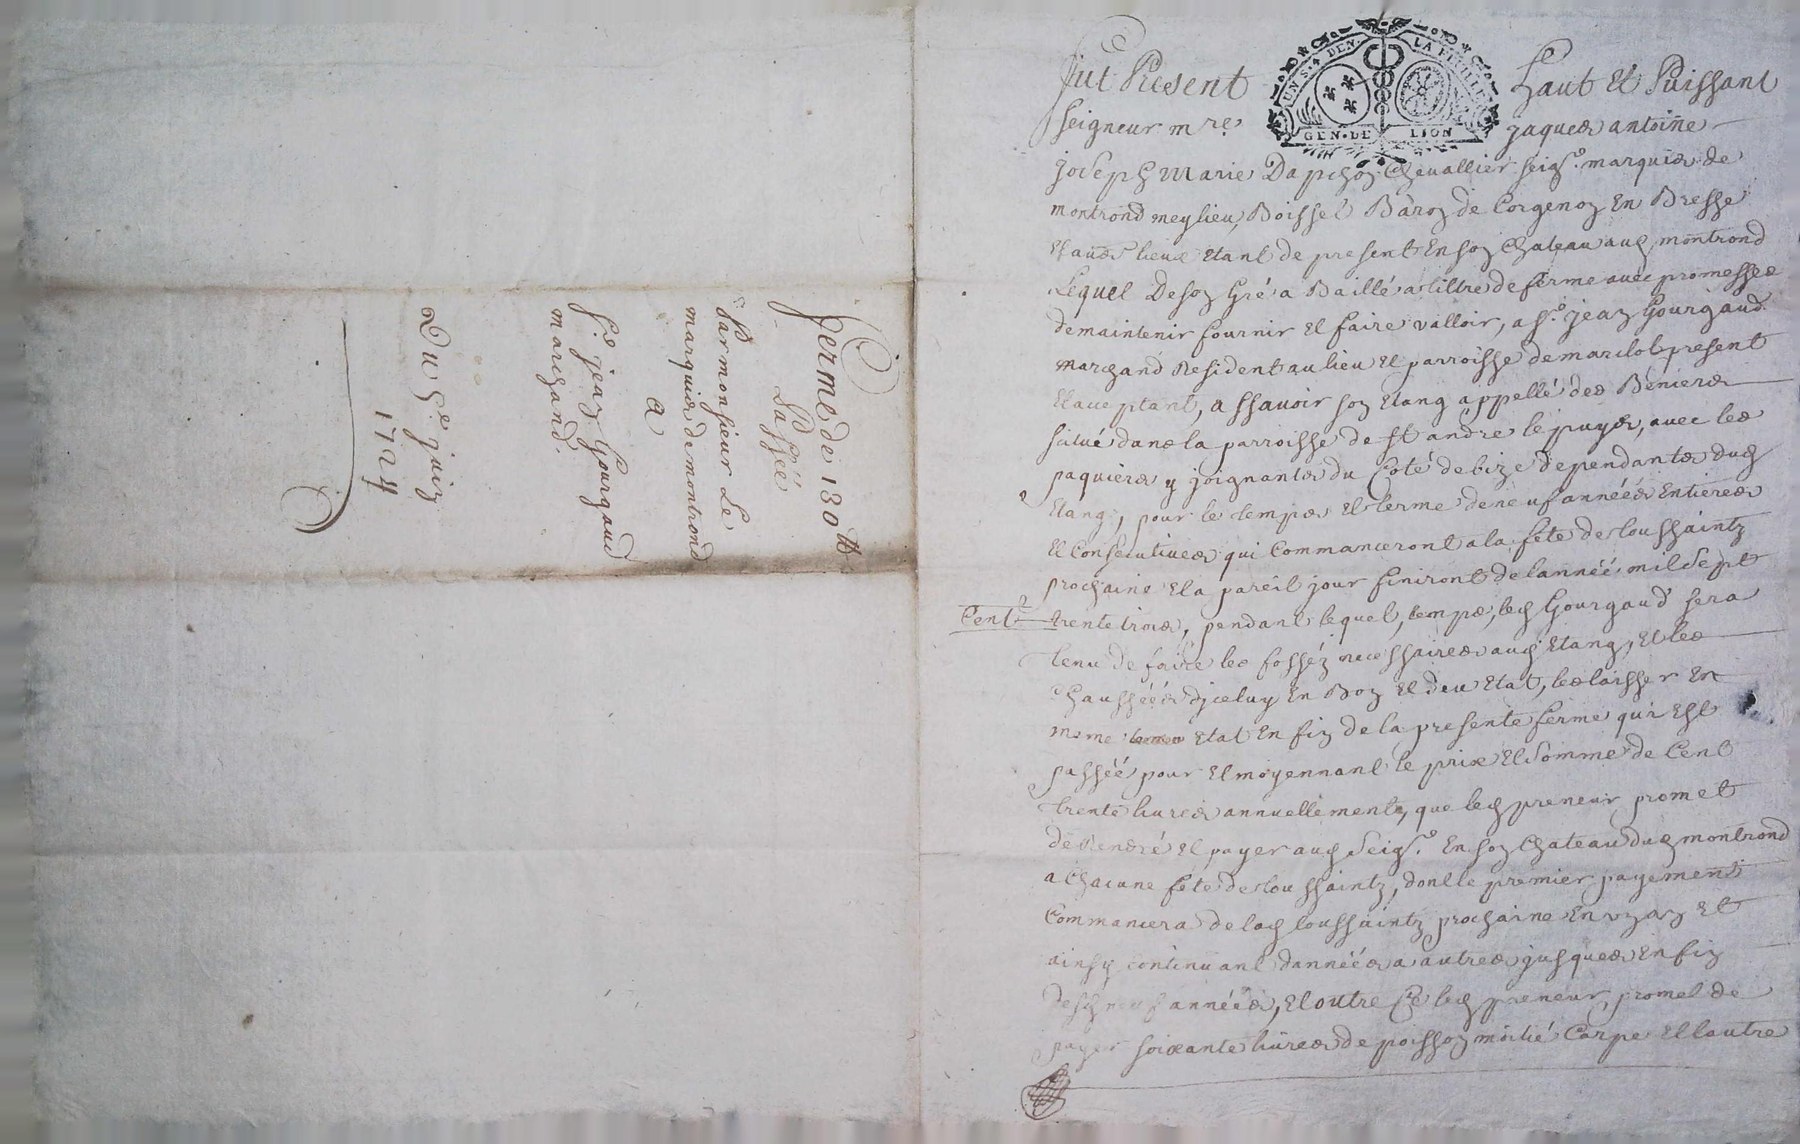 Ferme de 130 ₶
Passéé
Par monsieur Le
marquis de montrond
a
Sr. jean Gourgaud
marchand.
Du 5e juin
1724
UN S. 4 DEN. LA FEUILLE
GEN. DE LION
fut Present haut Et Puissant
seigneur mre jaques antoine
joseph Marie Dapchon Chevallier seigr. marquis de
montrond meylieu, Boisset Baron de Corgenon En Bresse
Et aües lieux Etant de present En son Chateau aud montrond
Lequel De son Gré a Baillé a tiltre de ferme avec promesses
de maintenir fournir Et faire valloir, a sr. jean Gourgaud
marchand Resident au lieu Et parroisse de marclot present
Et aceptant, a ssavoir son Etang appellé des Benieres
situé dans la parroisse de st andre le puys, avec les
paquiers y joignants du Coté de bize dependants dud
Etang, pour le temps Et terme de neuf annéés Entieres
Et Consecutives qui Commanceront a la fete de toussaintz
prochaine Et a pareil jour finiront de lannéé mil sept
Cent trente trois, pendant lequel temps, led Gourgaud sera
tenu de faire les fosséz necessaires aud Etang, Et les
Chausséés djceluy En Bon Et deu Etat, les laisser En
meme Etat En fin de la presente ferme qui Est
passéé pour Et moyennant le prix Et Somme de Cent
trente livres annuellement, que led preneur promet
de Rendre Et payer aud Seigr. En son Chateau dud montrond
a Chacune fete de toussaintz, dont le premier payement
Commancera de lad toussaintz prochaine En vn an Et
ainsy continuant dannéés a autres jusques En fin
desd neuf annéés, Et outre Ce led preneur promet de
payer soixante livres de poisson moitié Carpe Et lautre